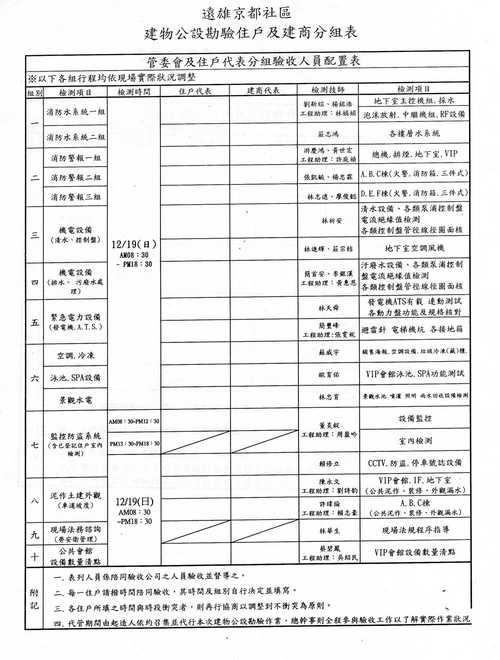 遠雄京都社區
建物公設勘驗住戶及建商分組表
管委會及住戶代表分組驗收人員配置表
※以下各組行程均依現場實際狀況調整
組別 檢測項目 檢測時間 住戶代表 建商代表 檢測技師 檢測項目
一 消防水系統一組 工程助理: 地下室主控機組, 採水
泡沫放射, 中繼機組, RF設備
消防水系統二組 莊志鴻 各樓層水系統
二 消防警報一組 游慶鴻、黃世宏 總機, 排煙, 地下室, VIP
工程助理:
消防警報二組 張凱敏、楊忠霖 A.B.C棟(火警, 消防箱, 三件式)
消防警報三組 林志遠、廖俊懿 D.E.F棟(火警, 消防箱, 三件式)
三 機電設備
(清水、控制盤)
12/19(日)
AM08:30
~PM18:30
林祈安 清水設備、各類泵浦控制盤
電流絕緣值檢測
各類控制盤管徑線徑圖面核
林進輝、莊宗桔 地下室空調風機
四 機電設備
(排水、污廢水處
理)
簡首安、李銀漢
工程助理:黃惠恩
汙廢水設備、各類泵浦控制
盤電流絕緣值檢測
各類控制盤管徑線徑圖面核
五 緊急電力設備
(發電機, A.T.S.)
林天舜 發電機ATS有載 連動測試
各動力盤功能及規格核對
簡豐峰 避雷針 電梯機坑 各接地箱
工程助理:張震乾
六 空調, 冷凍 蘇威宇
泳池, SPA設備 歐育佑 VIP會館泳池, SPA功能測試
景觀水電 林忠育 景觀水池, 噴灌 照明 雨水回收設備檢測
七 監控防盜系統
(含已登記住戶室內
檢測)
AM08:30-PM12:30
PM13:30-PM18:30
董奕錠
工程助理:周盈吟
設備監控
室內檢測
賴修立 CCTV, 防盜, 停車號誌設備
八 泥作土建外觀
(車道坡度)
12/19(日)
AM08:30
~PM18:30
陳永文
工程助理:劉詩韵
VIP會館, 1F, 地下室
(公共泥作、裝修、外觀漏水)
許瑋倫
工程助理:賴志豪
A.B.C棟
(公共泥作、裝修、外觀漏水)
九 現場法務諮詢
(勞安衛管理)
林華生 現場法規程序指導
十 公共會館
設備數量清點
蔡碧鳳
工程助理:吳紹民
VIP會館設備數量清點
附記
一. 表列人員係陪同驗收公司之人員驗收並督導之。
二. 每一住戶請撥時間陪同驗收, 其時間及組別自行決定並填寫。
三. 各住戶所填之時間與時段衝突者, 則再行協商以調整到不衝突為原則。
四. 代管期間由起造人依約召集並代行本次建物公設勘驗作業, 總幹事則全程參與驗收工作以了解實際作業狀況